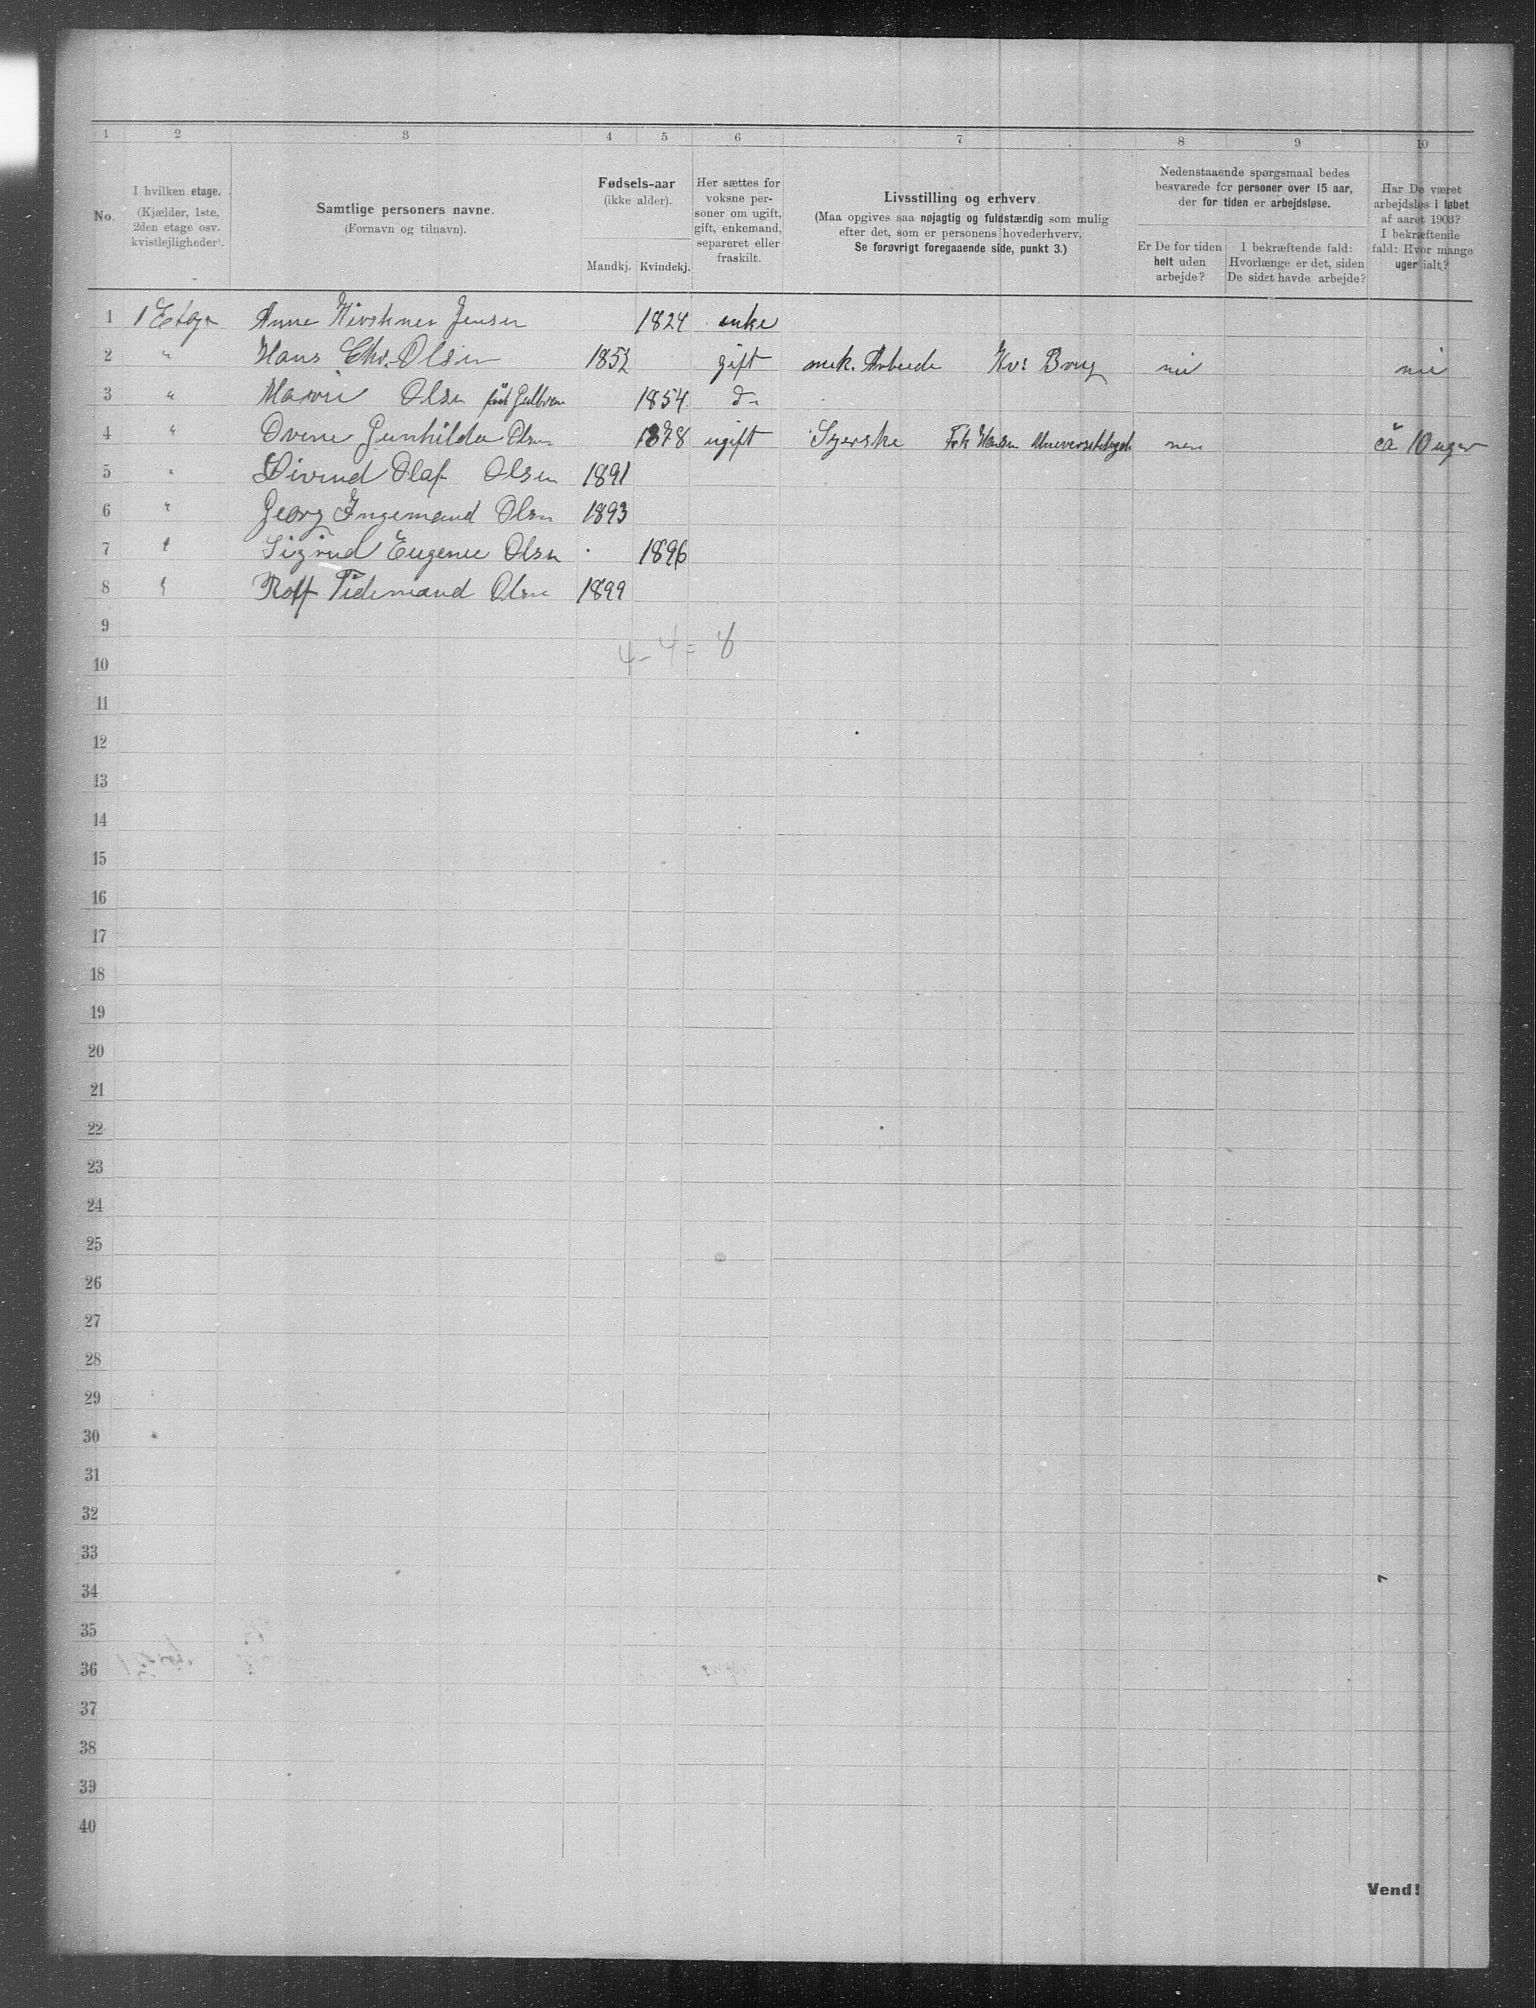 1 2 3 4 5 6 7 8 9 10
No.
I hvilken etage.
(Kjælder, 1ste,
2den etage osv.
kvistlejligheder).
Samtlige personers navne.
(Fornavn og tilnavn).
Fødsels-aar
(ikke alder).
Mandkj. Kvindekj.
Her sættes for
voksne per-
soner om ugift,
gift, enkemand,
separeret eller
fraskilt.
Livsstilling og erhverv
(Maa opgives saa nøjagtig og fuldstændig som mulig
efter det, som er personens hovederhverv.
Se forøvrigt foregaaende side, punkt 3.)
Nedenstaaende spørgsmaal bedes
besvarede for personer over 15 aar,
der for tiden er arbejdsløse.
Er De for tiden
helt uden
arbejde?
I bekræftende fald:
Hvorlænge er det, siden
De sidst havde arbejde?
Har De været
arbejdsløs i løbet
af aaret 1903?
I bekræftende
fald: Hvor mange
uger ialt?
1 1 Etage Anne Jensen 1824 enke
2 " Hans Chr. Olsen 1852 gift mek. Arbeide Kv: Brug nei nei
3 " Marie Olsen født 1854 do
4 " Ovene Gunhilda Olsen 1878 ugift Syerske Frk Hansen nei ca 10 uger
5 " Eivind Olaf Olsen 1891
6 " Georg Ingemand Olsen 1893
7 " Sigrud Eugenie Olsen 1896
8 " Rolf Tidemand Olsen 1899
9
4 - 4 = 8
10
11
12
13
14
15
16
17
18
19
20
21
22
23
24
25
26
27
28
29
30
31
32
33
34
35
36
37
38
39
40
Vend!